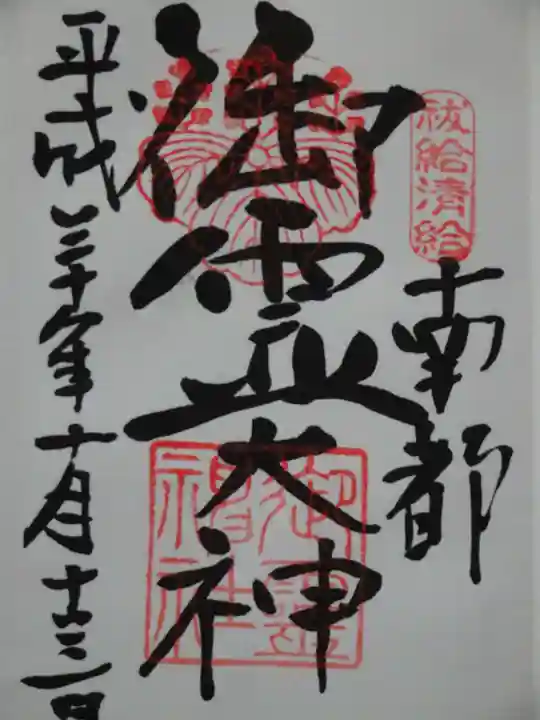 祓給清給
南都
御霊大神
御霊神社
平成三十年十月十三日